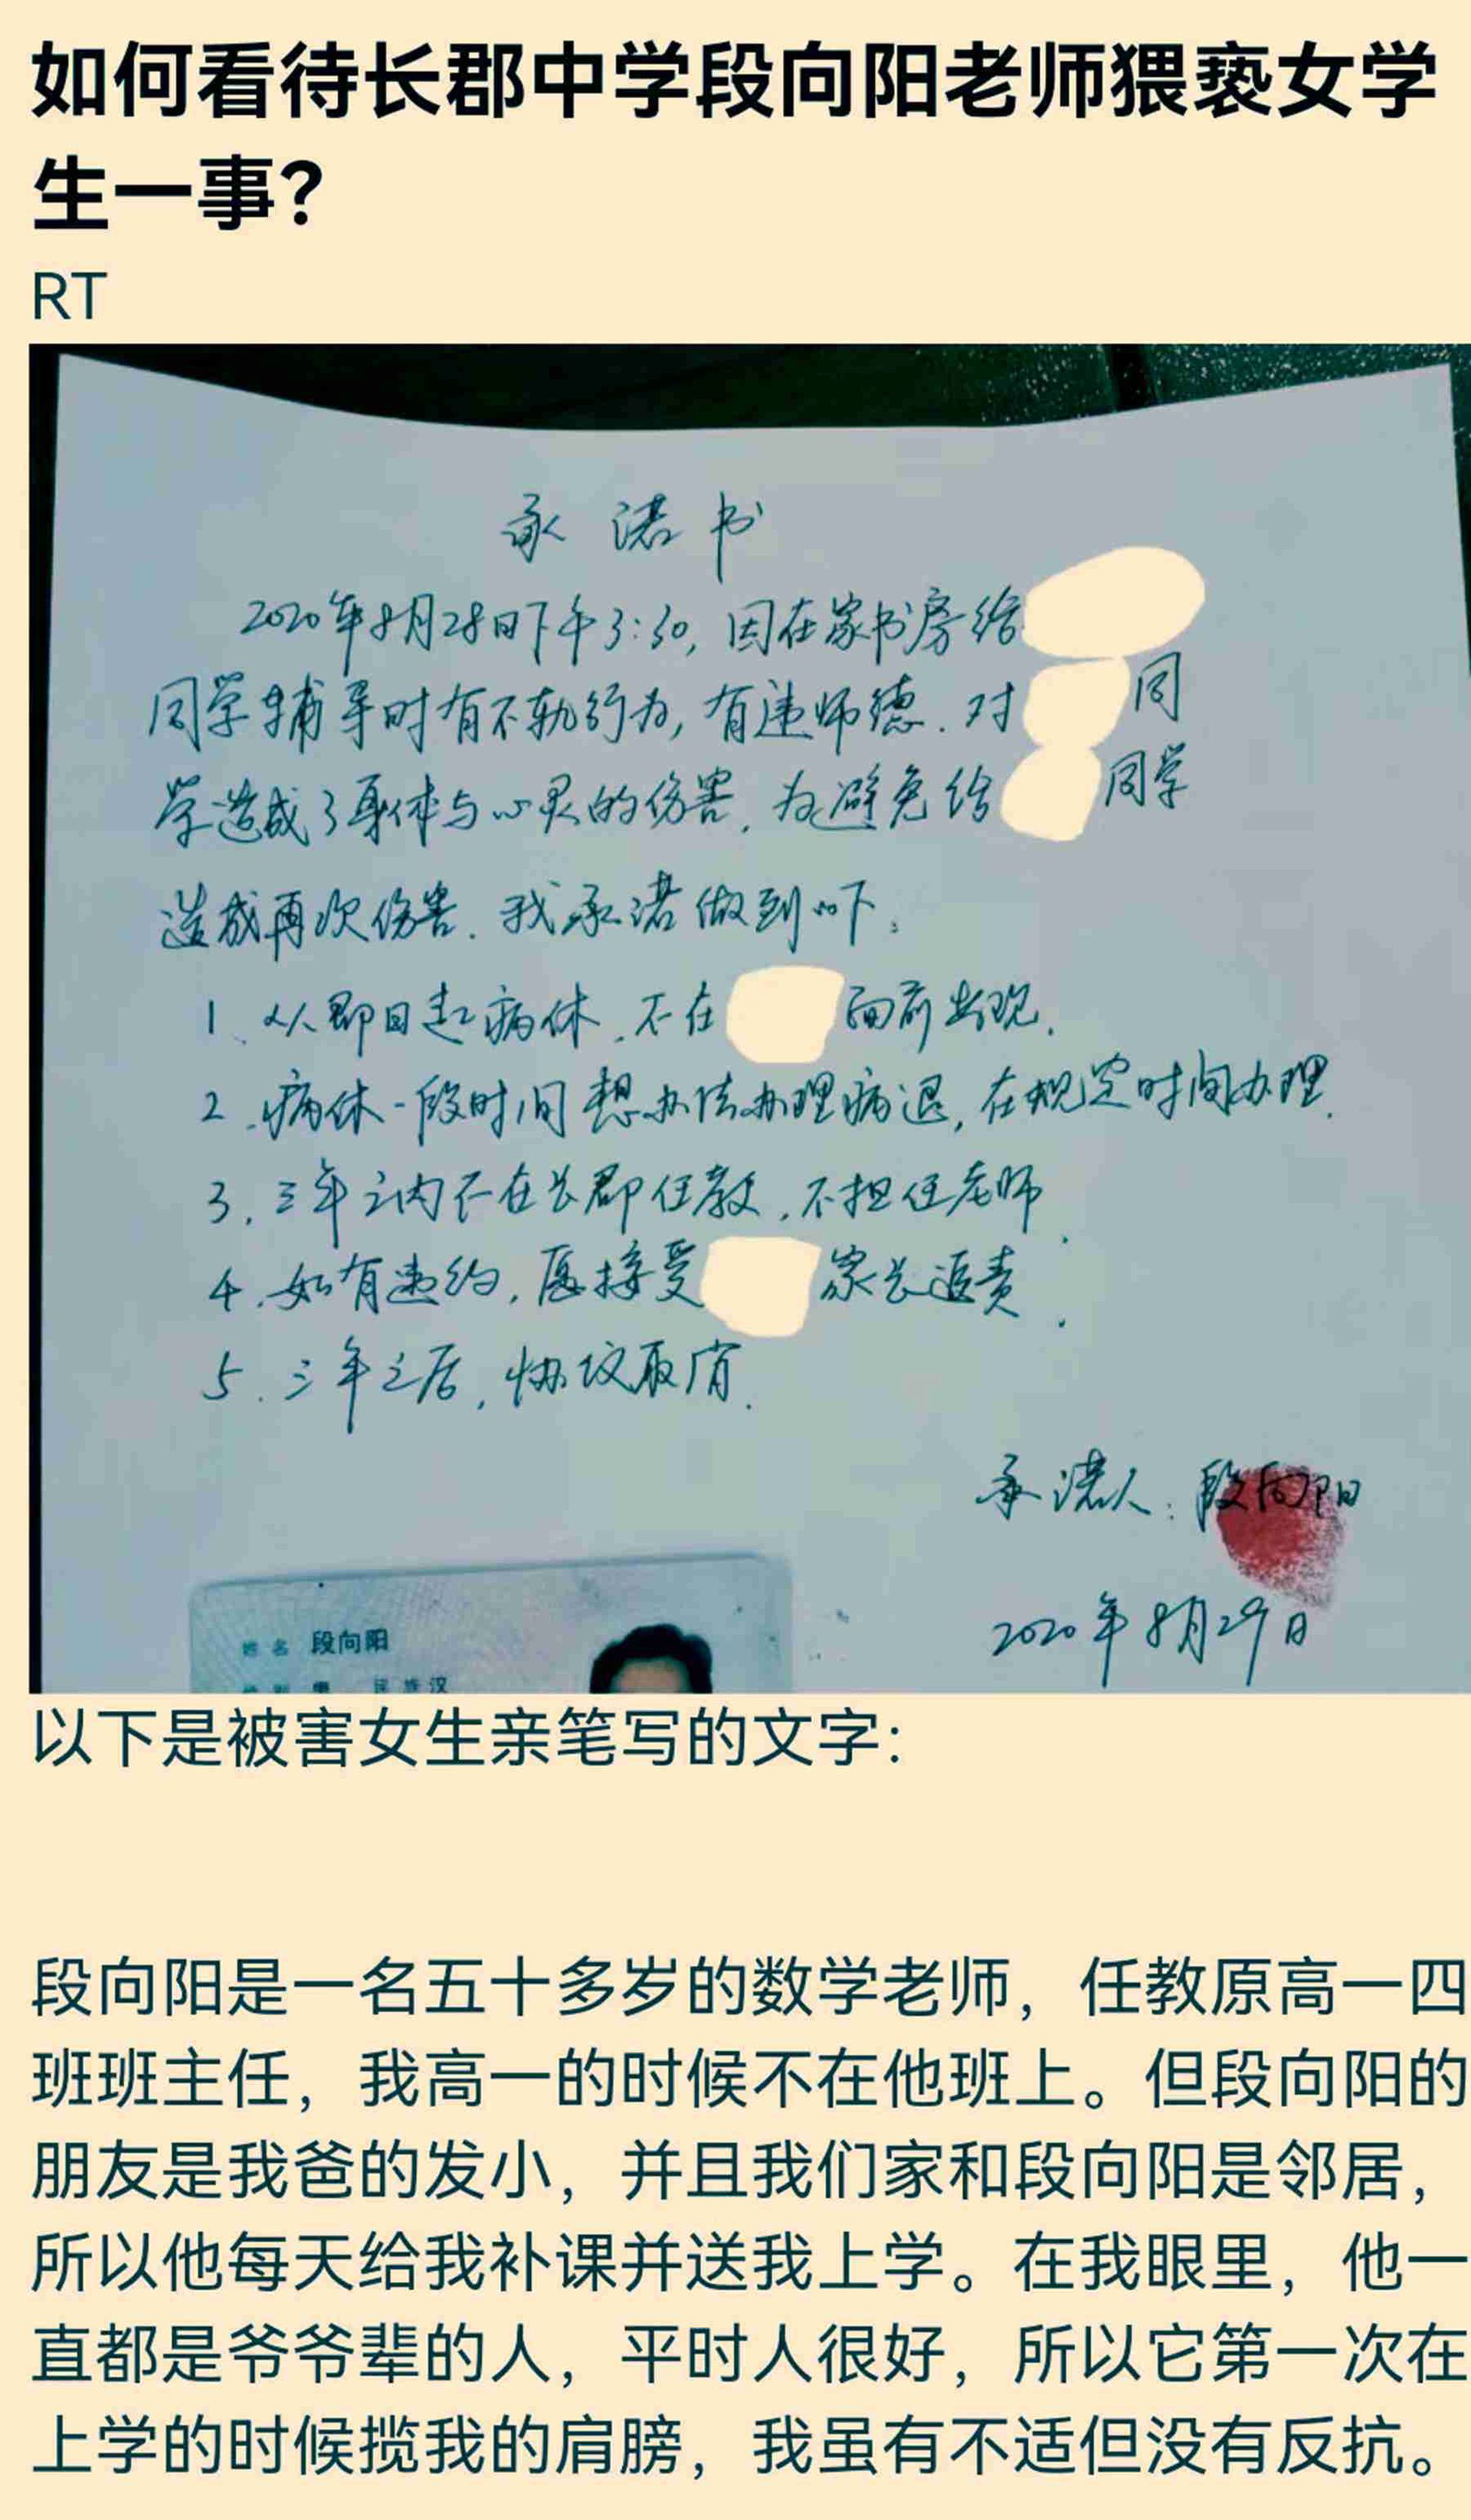 如何看待长郡中学段向阳老师猥亵女学
生一事?
RT
承诺书
2020年8月28日下午3:30,因在家书房给
同学辅导时有不轨行为,有违师德.对 同
学造成了身体与心灵的伤害.为避免给 同学
造成再次伤害.我承诺做到如下:
1、从即日起病休.不在 面前出现.
2.病休一段时间想办法办理病退,在规定时间办理.
3.三年之内不在长郡任教.不担任老师.
4.如有违约,愿接受 家长追责.
5.三年之后,协议取消.
承诺人:段向阳
2020年8月29日
姓名 段向阳
性别 男 民族 汉
以下是被害女生亲笔写的文字:
段向阳是一名五十多岁的数学老师,任教原高一四
班班主任,我高一的时候不在他班上。但段向阳的
朋友是我爸的发小,并且我们家和段向阳是邻居,
所以他每天给我补课并送我上学。在我眼里,他一
直都是爷爷辈的人,平时人很好,所以它第一次在
上学的时候揽我的肩膀,我虽有不适但没有反抗。